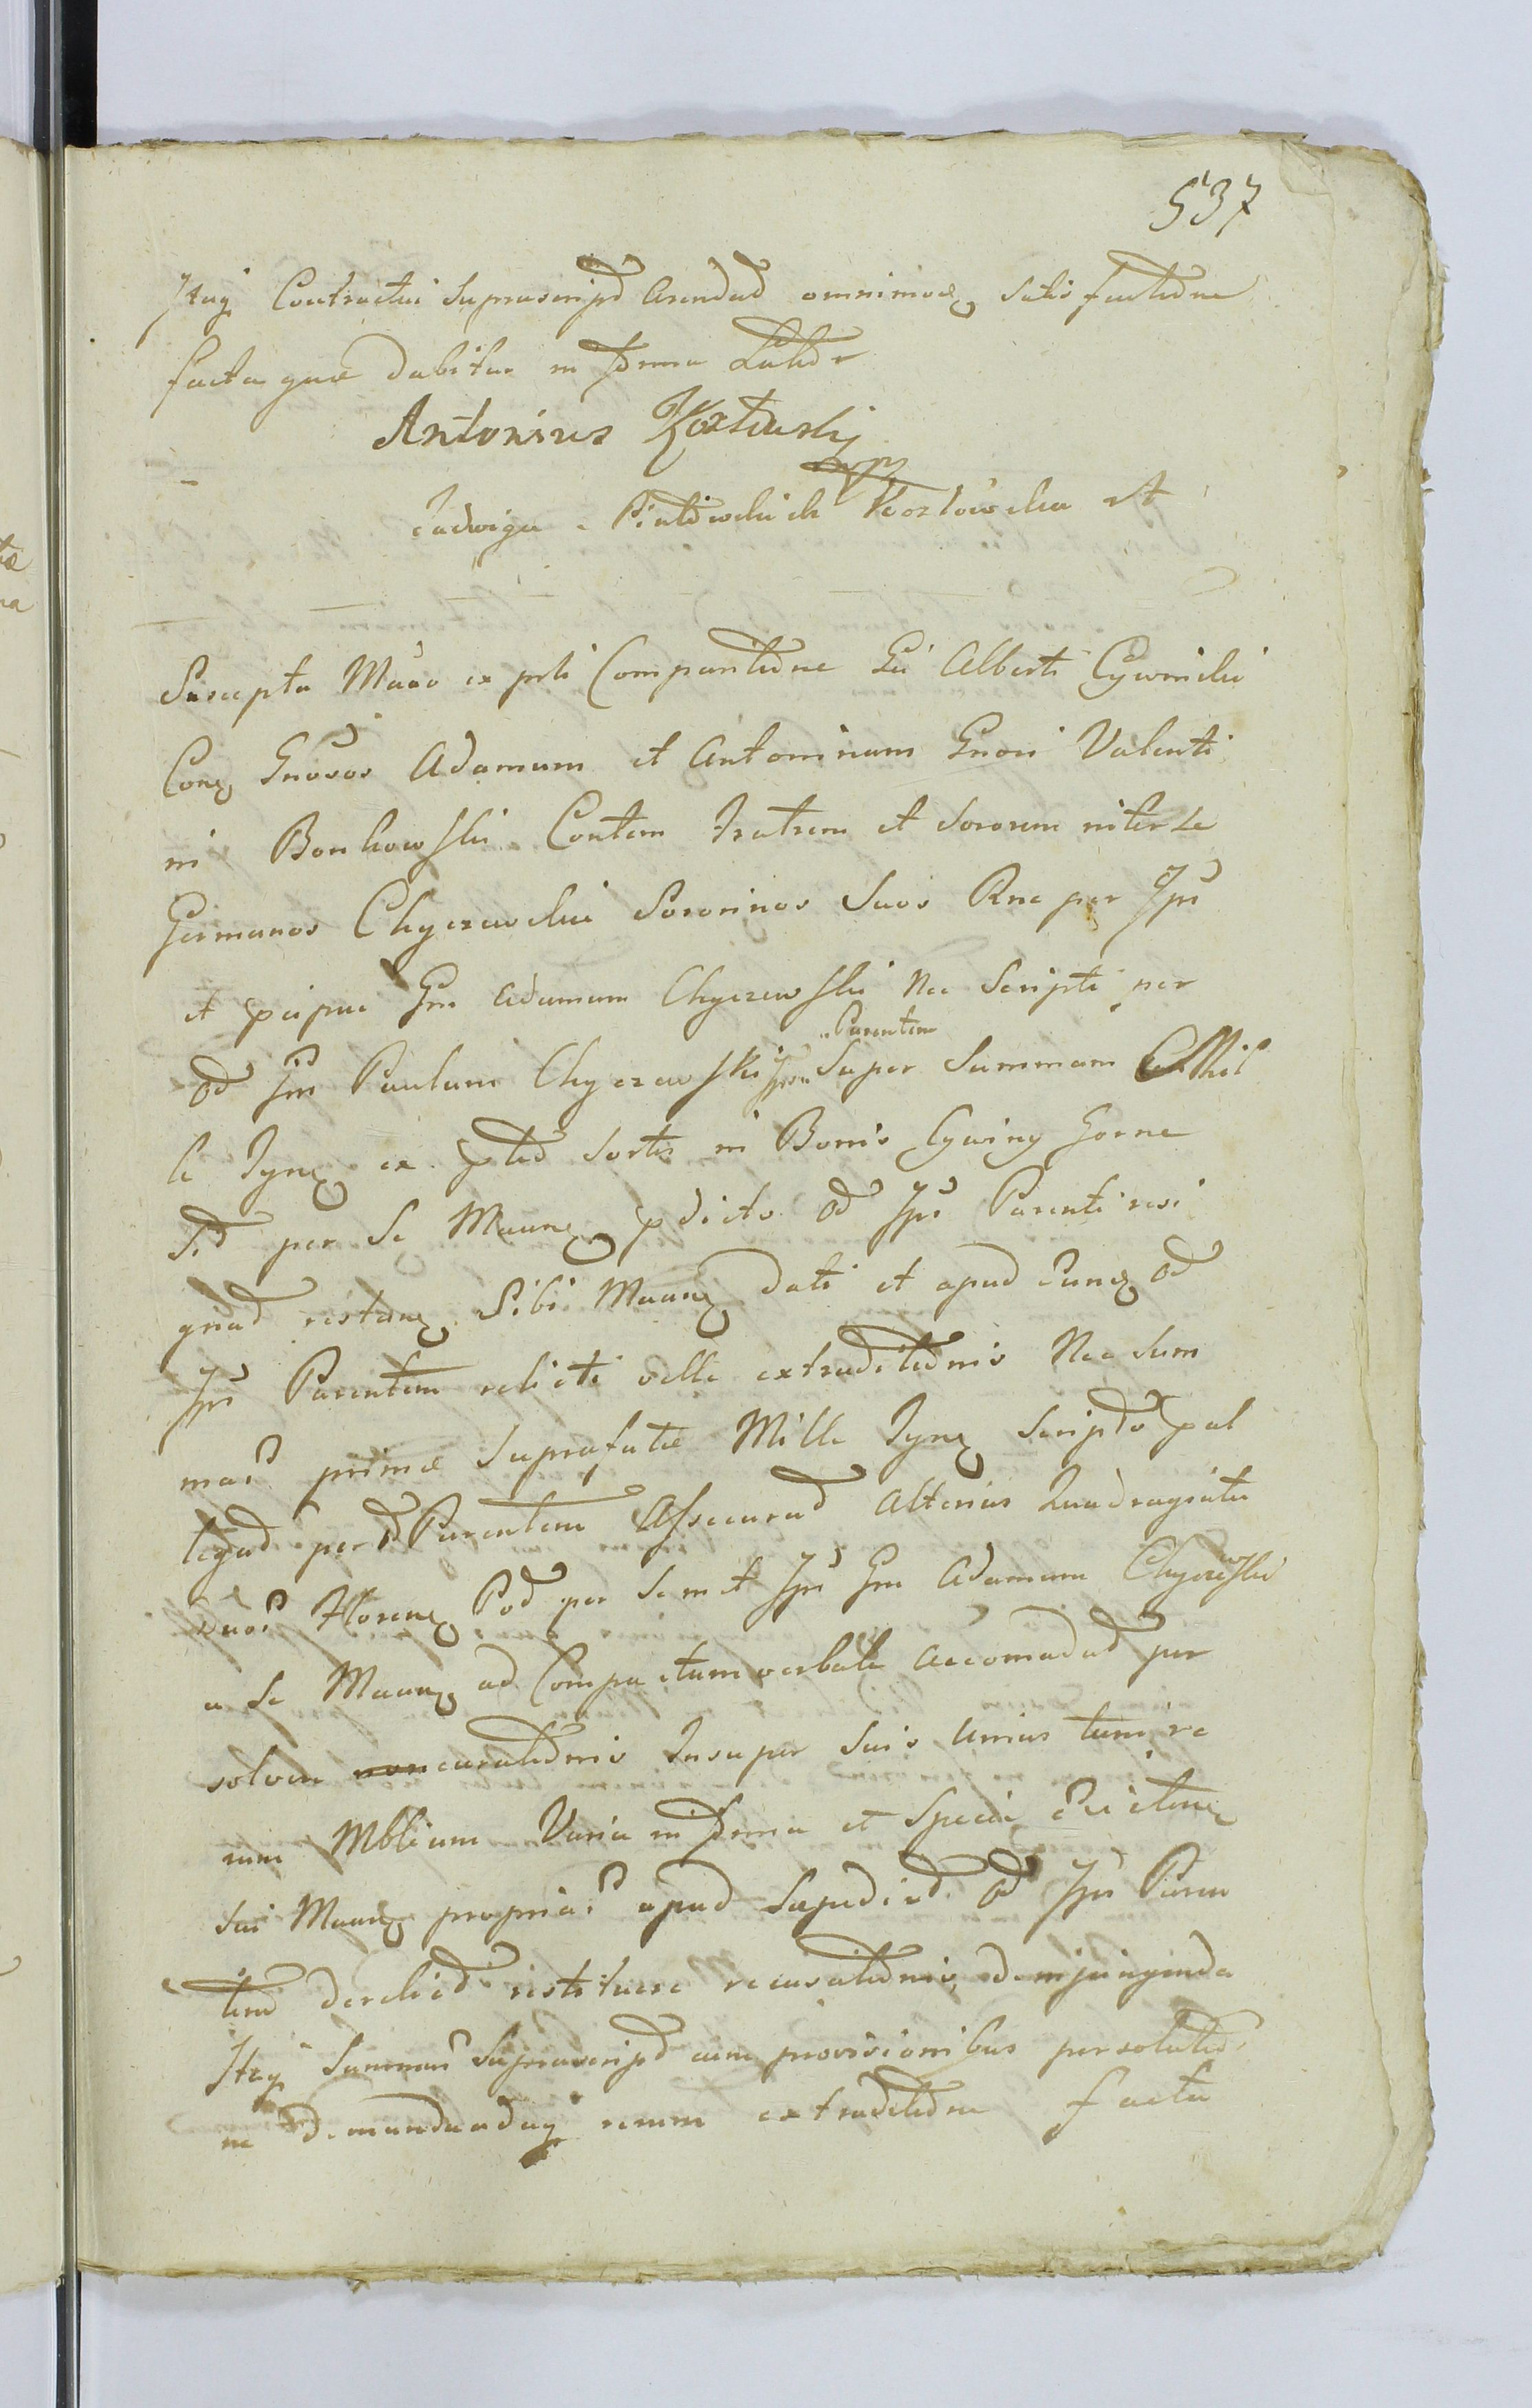 537
Itaq Contractui Suprascripd Arendad omnimoda satisfactione
factaque dabitur in forma Latior
Antonius Kozłowski
mp
Jadwiga Kozłowska
Suscepta Mano ex prti Comparitione Gsi Alberti Cywinski
Conq Gnosos Adamum et Antoninam Gnosi Valenti
ni Bonkowski Contem Fratrem et Sororem inter se
Germanos Chyczewskie Sororinos Suos Rne per Ips
et pcipue Gm Adamum Chyczewski Nec Scripti per
od Gm Paulum Chyczewski Ipsor Parentem Super Summam Mil
le Tynq ex sortis in Bonis Cywiny Gorne
per Se Manq pdicto od Ips Parenti resi
gnad restanq Sibi Manq dati et apud Eunq od
Ips Parentem relicti velle extraditionis Nec Sum
mar primæ Suprafatæ Mille Tynq Scripto pal
legad per od Parentem Assecurad Alterius Quadraginta
duor Florenq Pod per Semet Ips Gm Adamum Chyczewski
a Se Manq ad Compactum verbale accomodad per
solven curationis Insuper Suis unius tum re
rum Mblium Varia in forma et Specie
sui Manq propriar apud Supadicd od Ips Paren
tem derelicd restituere recusationis, demjungenda
Itaq Summar Suprascripd cum provisionibus persolutio
ne demandandaq rerum extraditione facta